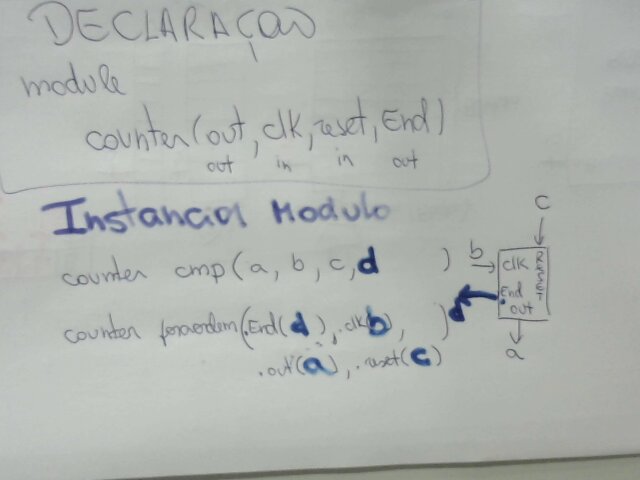 DECLARAÇÃO
module
counter(out, clk, reset, End)
out in in out
Instancial Modulo
counter cmp(a, b, c, d )
counter foraordem(.End(d), .clk(b), )
.out(a), .reset(c)
c
b
clk RESET
d End
out
a